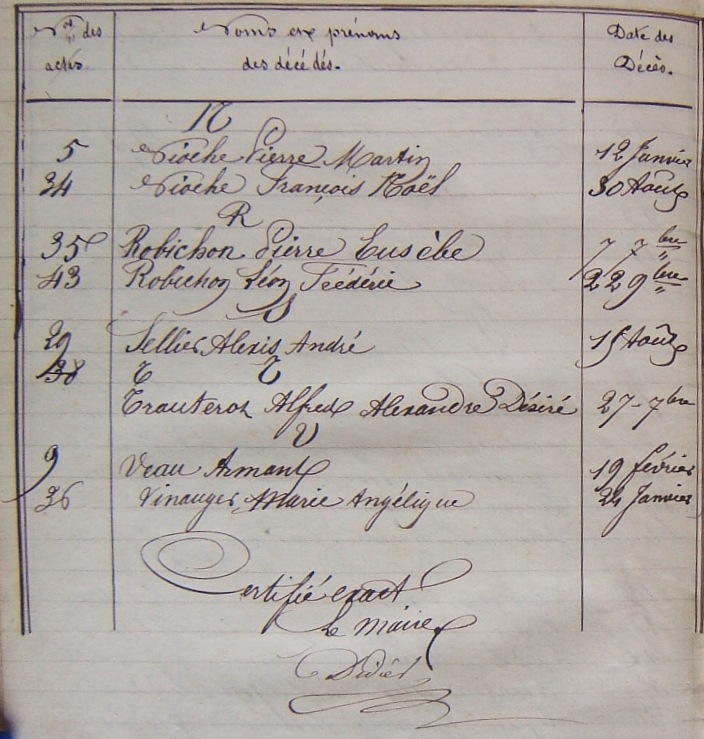 Nos des actes Noms et prénoms des décédés. Date des Décès.
N
5 Nioche Pierre Martin 12 Janvier
34 Nioche François Noël 30 Août
R
35 Robichon Pierre Eusèbe 7 7bre
43 Robichon Léon Frédéric 22 9bre
S
29 Sellier Alexis André 15 Août
38 T T
Trauteroz Alfred Alexandre Désiré 27-7bre
V
9 Veau Armant 19 février
36 Vinauger Marie Angélique 24 Janvier
Certifié exact
Le Maire
Didier